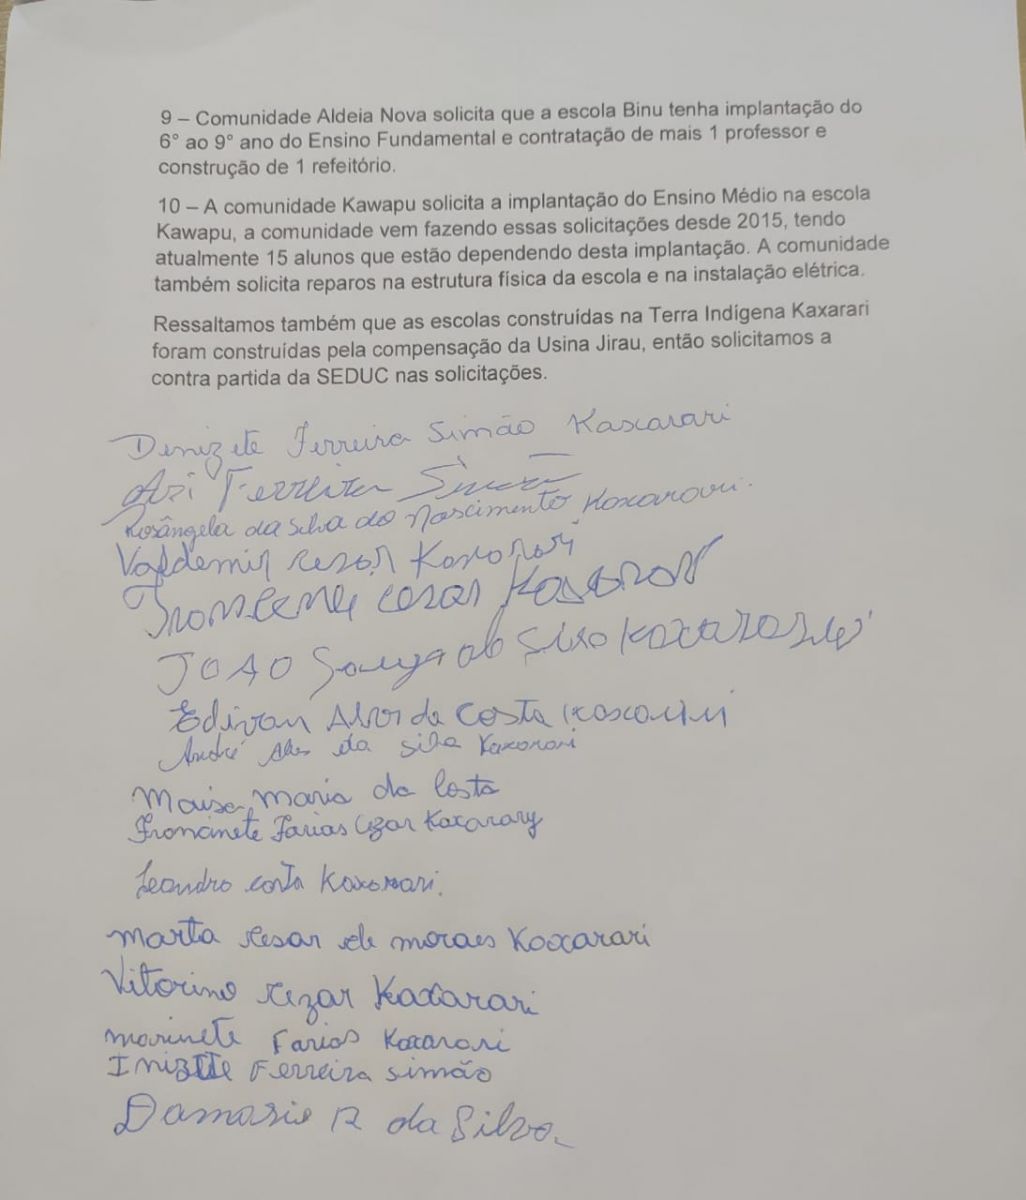 9 – Comunidade Aldeia Nova solicita que a escola Binu tenha implantação do
6° ao 9° ano do Ensino Fundamental e contratação de mais 1 professor e
construção de 1 refeitório.
10 – A comunidade Kawapu solicita a implantação do Ensino Médio na escola
Kawapu, a comunidade vem fazendo essas solicitações desde 2015, tendo
atualmente 15 alunos que estão dependendo desta implantação. A comunidade
também solicita reparos na estrutura física da escola e na instalação elétrica.
Ressaltamos também que as escolas construídas na Terra Indígena Kaxarari
foram construídas pela compensação da Usina Jirau, então solicitamos a
contra partida da SEDUC nas solicitações.
Denizete Ferreira Simão Kaxarari
Ari Ferreira
Rosângela da Silva do Nascimento Kaxarari.
Valdemir Cezar Kaxarari
Cezar
JOAO Souza
Edivan da Costa
André Alves da Silva Kaxarari
Maria da Costa
Francinete Farias Cezar Kaxarary
Leandro Costa Kaxarari.
Marta Cesar de Moraes Kaxarari
Vitorino Cezar Kaxarari
Marinete Farias Kaxarari
Ferreira Simão
da Silva